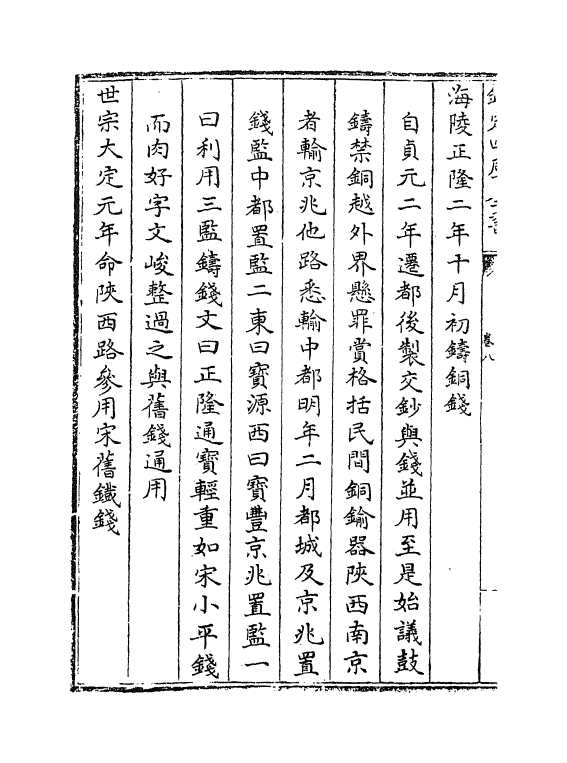 欽定四庫全書
卷八
海陵正隆二年十月初鑄銅錢
自貞元二年遷都後製交鈔與錢並用至是始議鼓
鑄禁銅越外界懸罪賞格括民間銅鍮器陜西南京
者輸京兆他路悉輸中都明年二月都城及京兆置
錢監中都置監二東曰寶源西曰寶豐京兆置監一
曰利用三監鑄錢文曰正隆通寶輕重如宋小平錢
而肉好字文峻整過之與舊錢通用
世宗大定元年命陜西路參用宋舊鐵錢